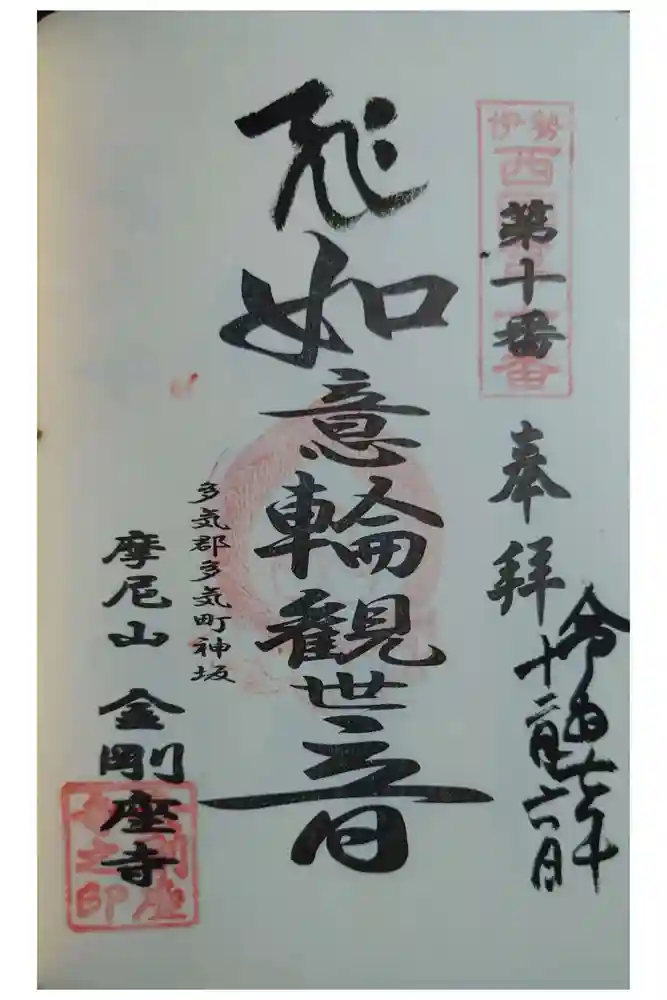 伊勢
西
第十番
奉拝
令和七年
十二月六日
如意輪観世音
多気郡多気町神坂
摩尼山 金剛座寺